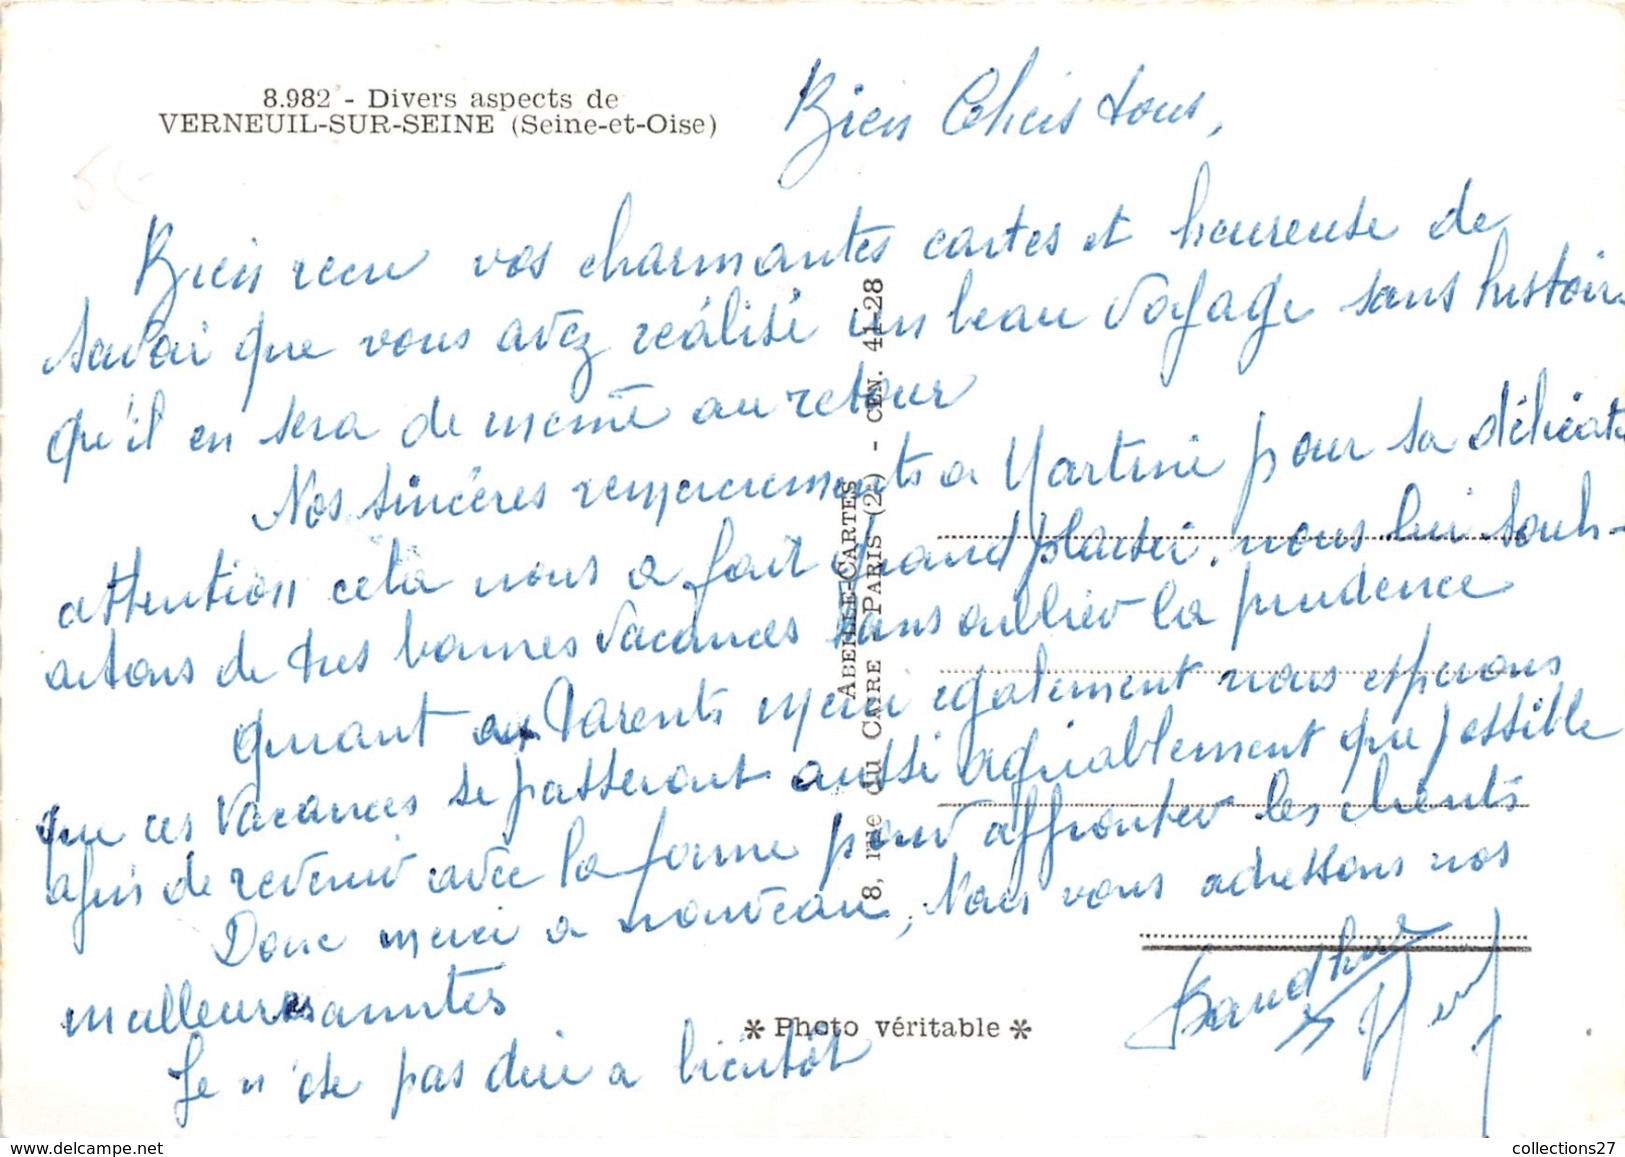 8.982 - Divers aspects de
VERNEUIL-SUR-SEINE (Seine-et-Oise)
Bien Chers tous,
Bien recu vos charmantes cartes et heureuse de
savoir que vous avez réalisé un beau voyage sans histoire
qu'il en sera de meme au retour
Nos sincères remerciements a Martine pour sa délicate
attention cela nous a fait grand plaisir, nous lui souh-
aitons de tres bonnes vacances sans oublier la prudence
Quant aux Parents merci egalement nous esperons
que ces vacances se passeront aussi agréablement que possible
afin de revenir avec la forme pour affronter les clients
Donc merci a nouveau, Nous vous adressons nos
meilleures amities
Je n'ose pas dire a bientôt
ABEILLE-CARTES
8, rue du CAIRE - PARIS (2e) - CEN. 41-28
* Photo véritable *
collections27